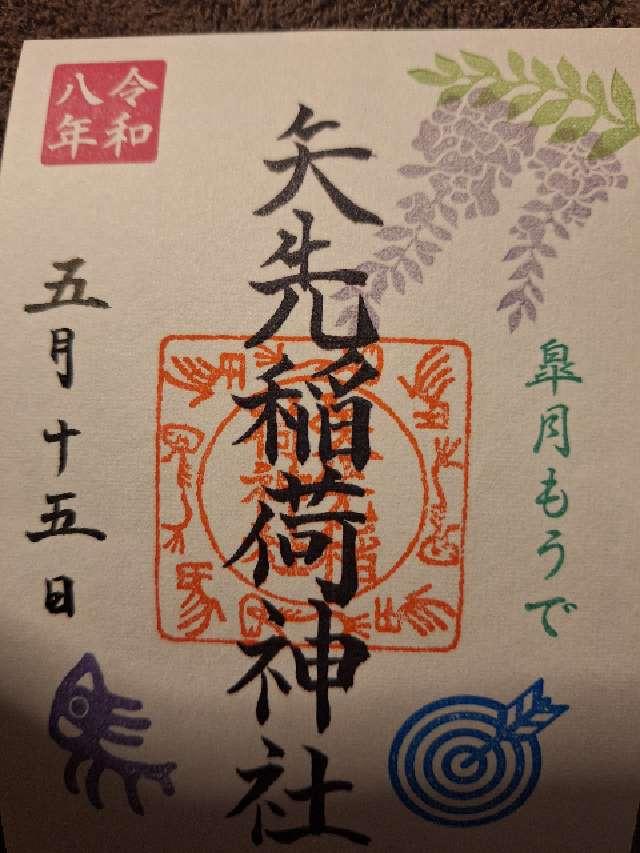 皐月もうで
矢先稲荷神社
令和
八年
五月十五日